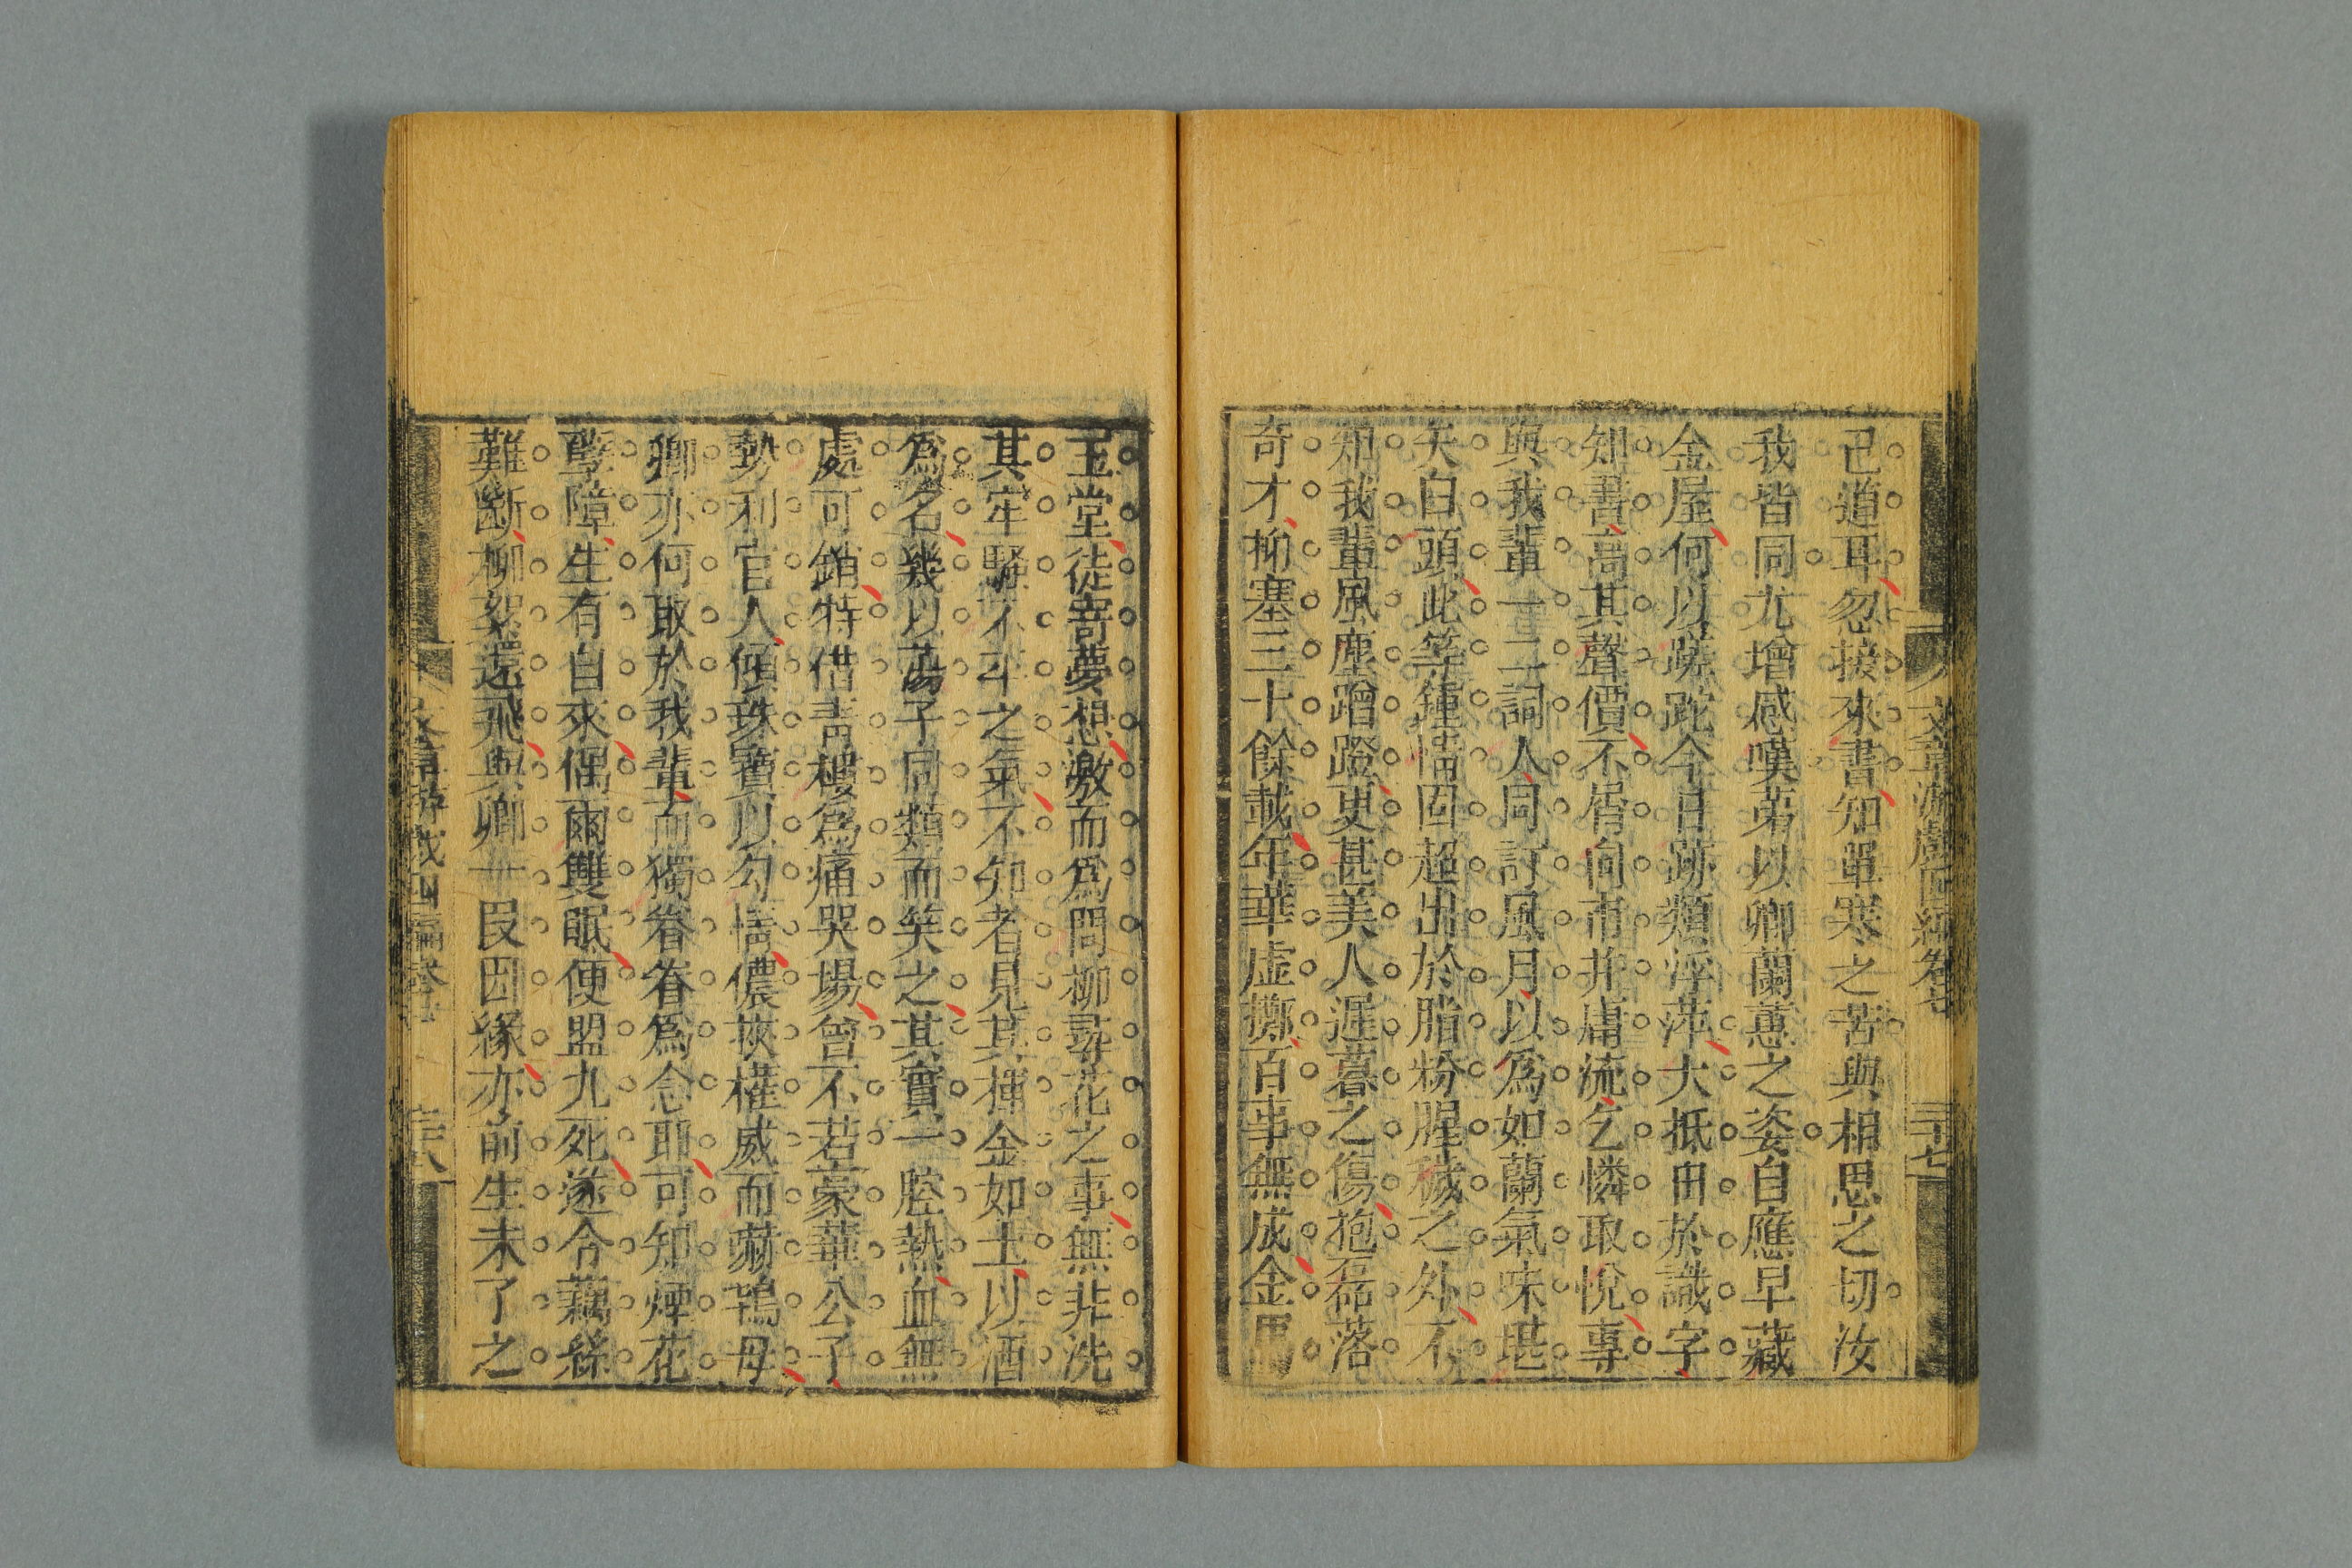 文章游戲四編卷七
三十七
已道耳忽接來書知單寒之苦與相思之切汝
我皆同尤增感嘆弟以卿蘭蕙之姿自應早藏
金屋何以蹉跎今日跡類浮萍大抵田於識字
知書高其聲價不屑向市井庸流乞憐取悅專
與我輩一二詞人同訂風月以為如蘭氣味堪
矢白頭此等鍾情固超出於脂粉腥穢之外不
知我輩風塵蹭蹬更甚美人遲暮之傷抱磊落
奇才抑塞三十餘載年華虛擲百事無成金馬
玉堂徒寄夢想激而為問柳尋花之事無非洗
其牢騷不平之氣不知者見其揮金如土以酒
為名幾以蕩子同類而笑之其實一腔熱血無
處可銷特借青樓為痛哭場曾不若豪華公子
勢利官人傾珠寶以勾情儂挾權威而嚇鴇母
卿亦何取於我輩而獨眷眷為念耶可知煙花
孽障生有自來偶爾雙眠便盟九死遂令藕絲
難斷柳絮還飛與卿一叚因緣亦前生未了之
文章游戲四編卷七
三十八